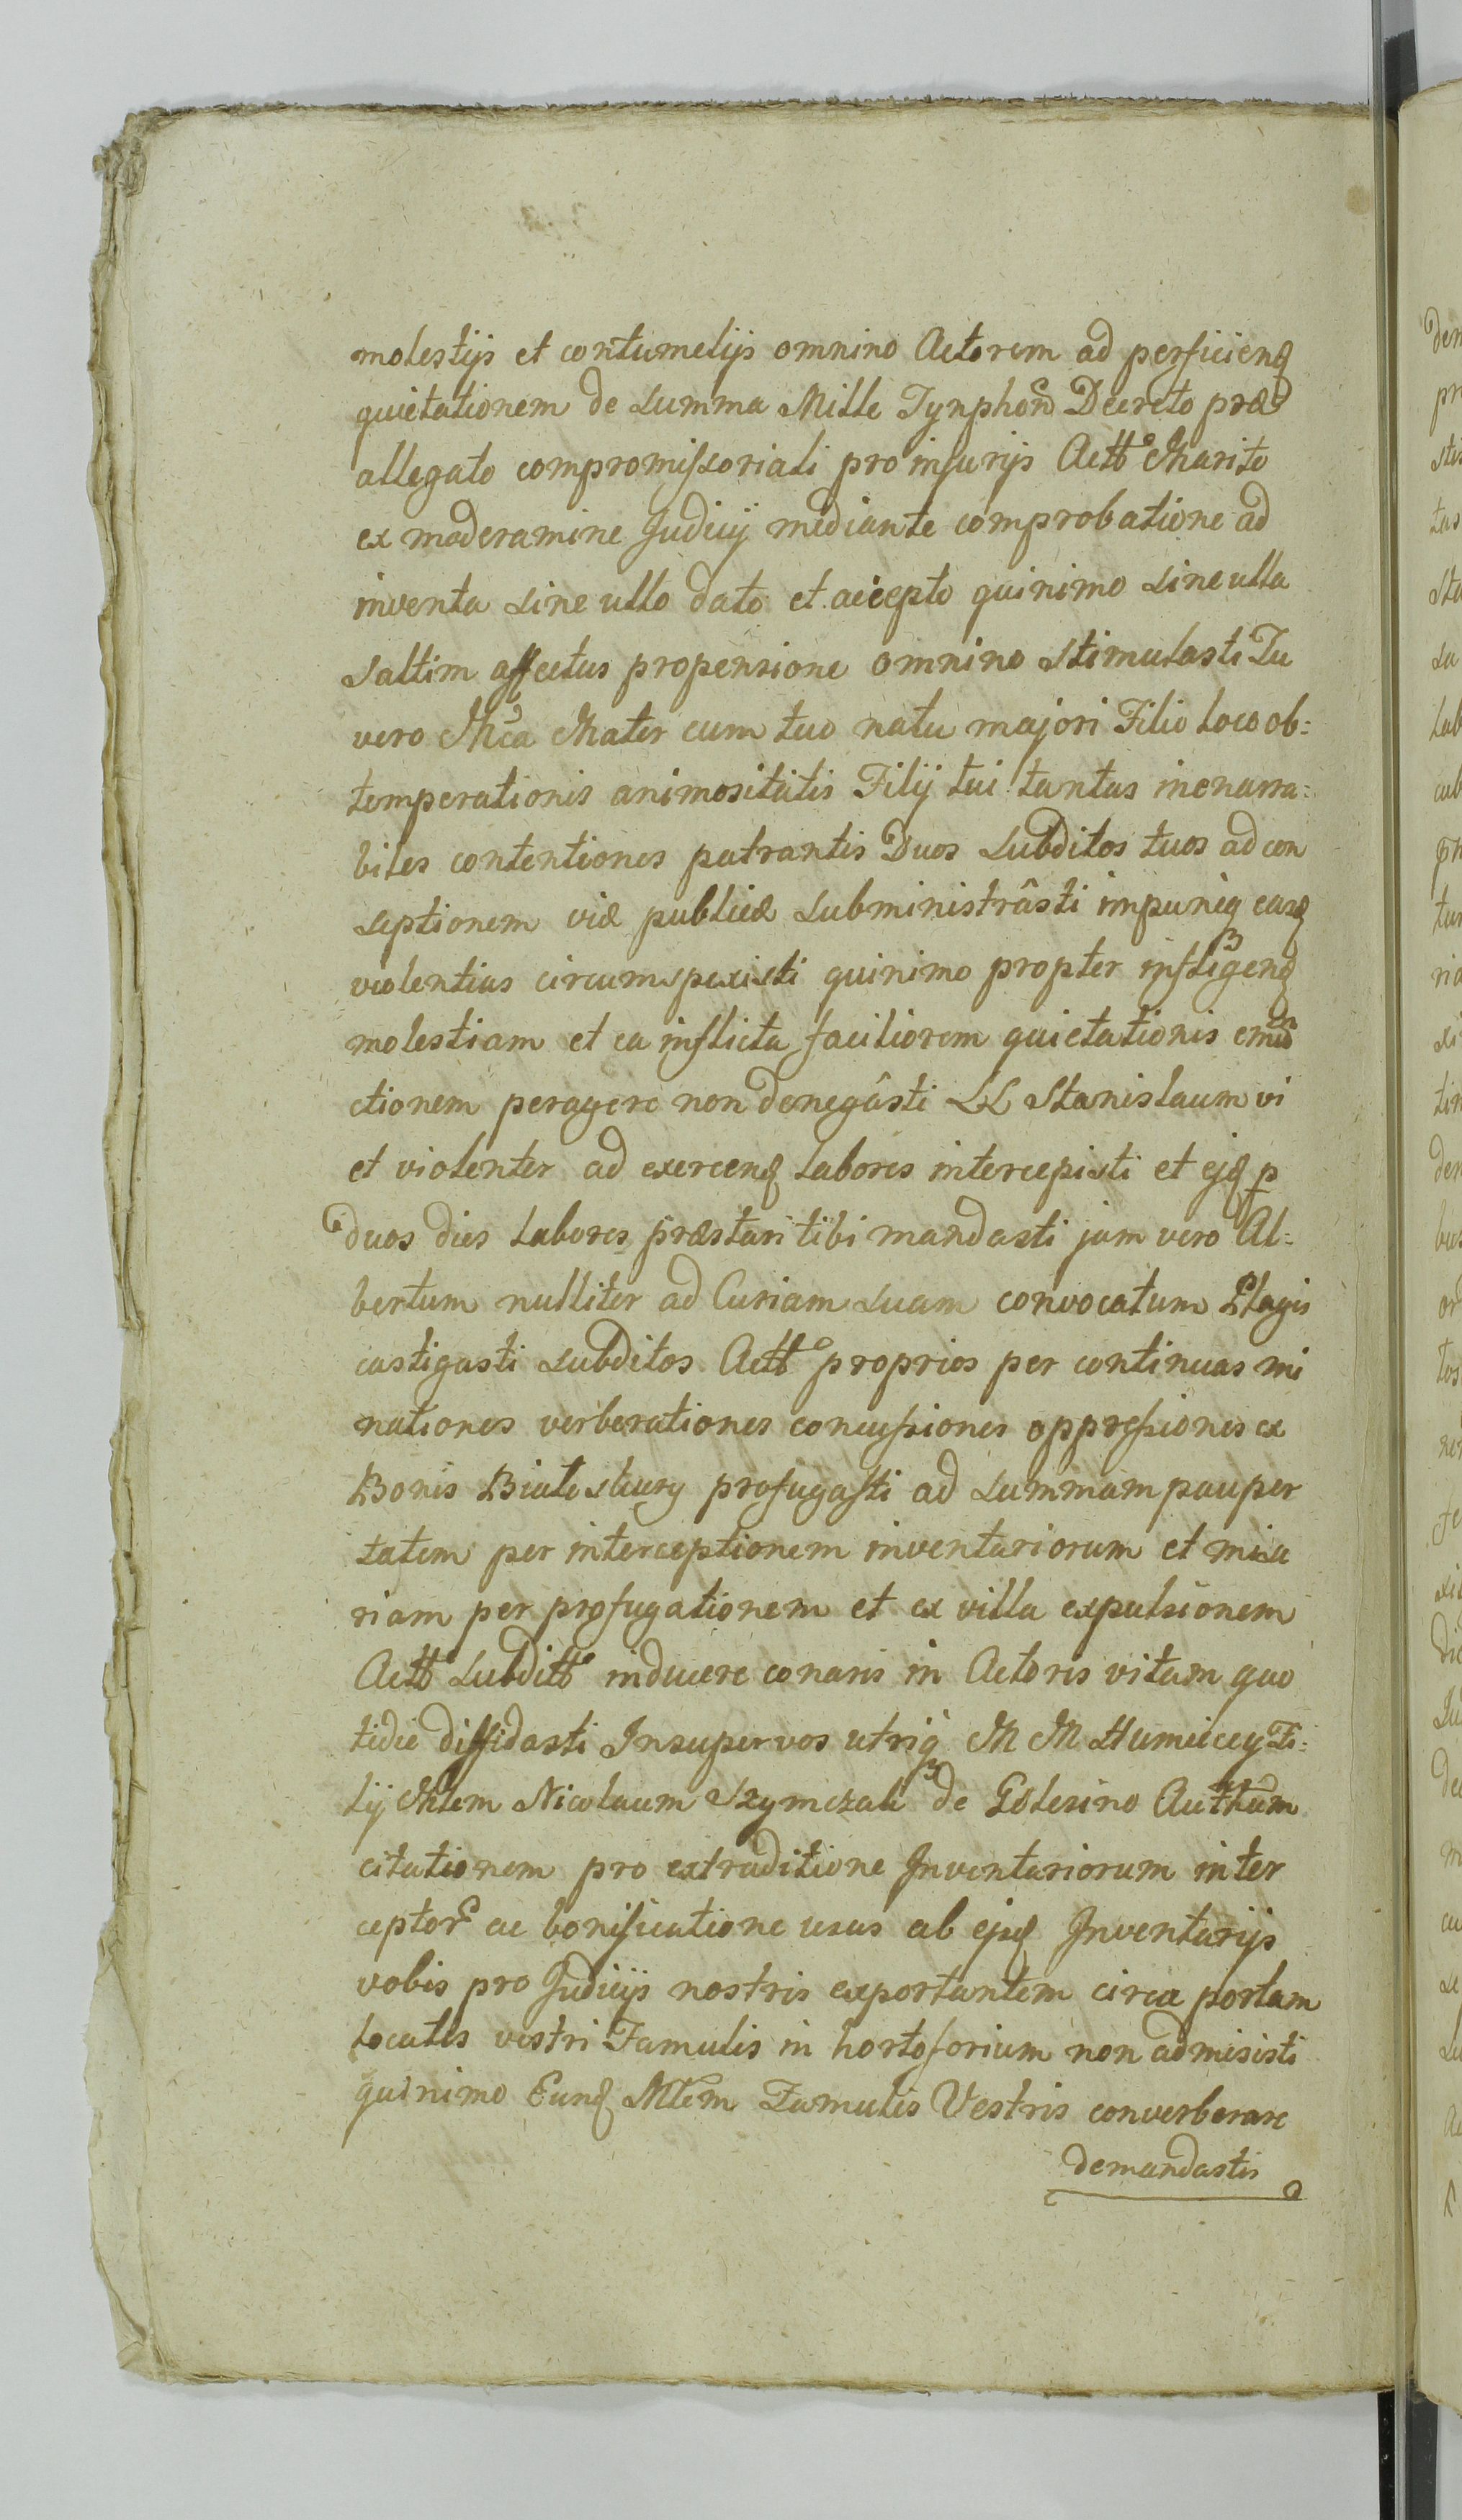 molestijs et contumelijs omnino Actorem ad perficienq
quietationem de Summa Mille Tynphoñ Decreto præ
allegato compromissoriali pro injurijs Actto Marito
ex moderamine Judicij mediante comprobatione ad
inventa sine ullo dato et accepto quinimo sine ulla
saltim affectus propensione omnino stimulasti Tu
vero Mca Mater cum tuo natu majori Filio loco ob:
temperationis animositatis Filij tui tantas inenarra:
biles contentiones patrantis Duos Subditos tuos ad con
septionem viæ publicæ subministrâsti impuneq easq
violentias circumspexisti quinimo propter infligenq
molestiam et ea inflicta faciliorem quietationis emun
ctionem peragere non denegâsti LL Stanislaum vi
et violenter ad exercenq labores intercepisti et ejq p
duos dies labores præstari tibi mandasti jam vero Al:
bertum nulliter ad Curiam suam convocatum Plagis
castigasti Subditos Actto proprios per continuas mi
nationes verberationes concussiones oppressiones ex
Bonis Biale profugasti ad summam pauper
tatem per interceptionem inventariorum et mise
riam per profugationem et ex villa expulsionem
Actto Subditto inducere conaris in Actoris vitam quo
tidie diffidasti Insuper vos utriq M M Humiecey Fi:
lij Mtem Nicolaum Szymczak de Golesino Autthum
citationem pro extraditione Inventariorum inter
ceptor ac bonificatione usus ab ejsq Inventarijs
vobis pro Judicijs nostris exportantem circa portam
locatis vestri Famulis in hortoforium non admisisti
quinimo Eunq Mtem Famulis Vestris converberare
demandastis